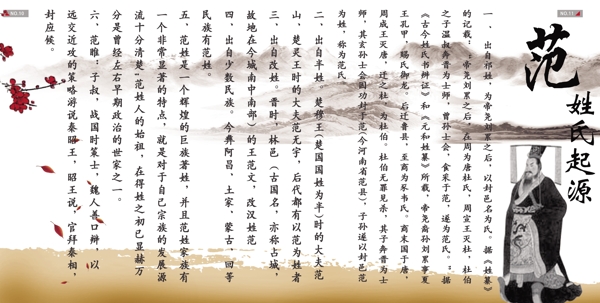 NO.10
NO.11
范
姓氏起源
一、出自祁姓，为帝尧刘累之后，以封邑名为氏。据《姓纂》
的记载：“帝尧刘累之后，在周为唐杜氏，周宣王灭杜，杜伯
之子温叔奔晋为士师，曾孙士会，食采于范，遂为范氏。”据
《古今姓氏书辩证》和《元和姓纂》所载，帝尧裔孙刘累事夏
王孔甲，赐氏御龙，后迁鲁县，至商为豕韦氏。商末国于唐，
周成王灭唐，迁之杜，为杜伯。杜伯无罪见杀，其子奔晋为士
师，其玄孙士会因功封于范(今河南省范县)，子孙遂以封邑范
为姓，称为范氏。
二、出自芈姓，楚穆王(楚国国姓为芈)时的大夫范
山、楚灵王时的大夫范无宇，后代都有以范为姓者
三、出自改姓。晋时，林邑（古国名，亦称占城，
故地在今越南中南部）的王范文，改汉姓范
四、出自少数民族。今彝阿昌、土家、蒙古、回等
民族有范姓。
五、范姓是一个辉煌的巨族著姓，并且范姓家族有
一个非常显著的特点，就是对于自己宗族的发展源
流十分清楚，范姓人的始祖，在得姓之初已显赫万
分是曾经左右早期政治的世家之一。
六、范雎：子叔，战国时策士，魏人善口辩，以
远交近攻的策略游说秦昭王，昭王说，官拜秦相，
封应候。